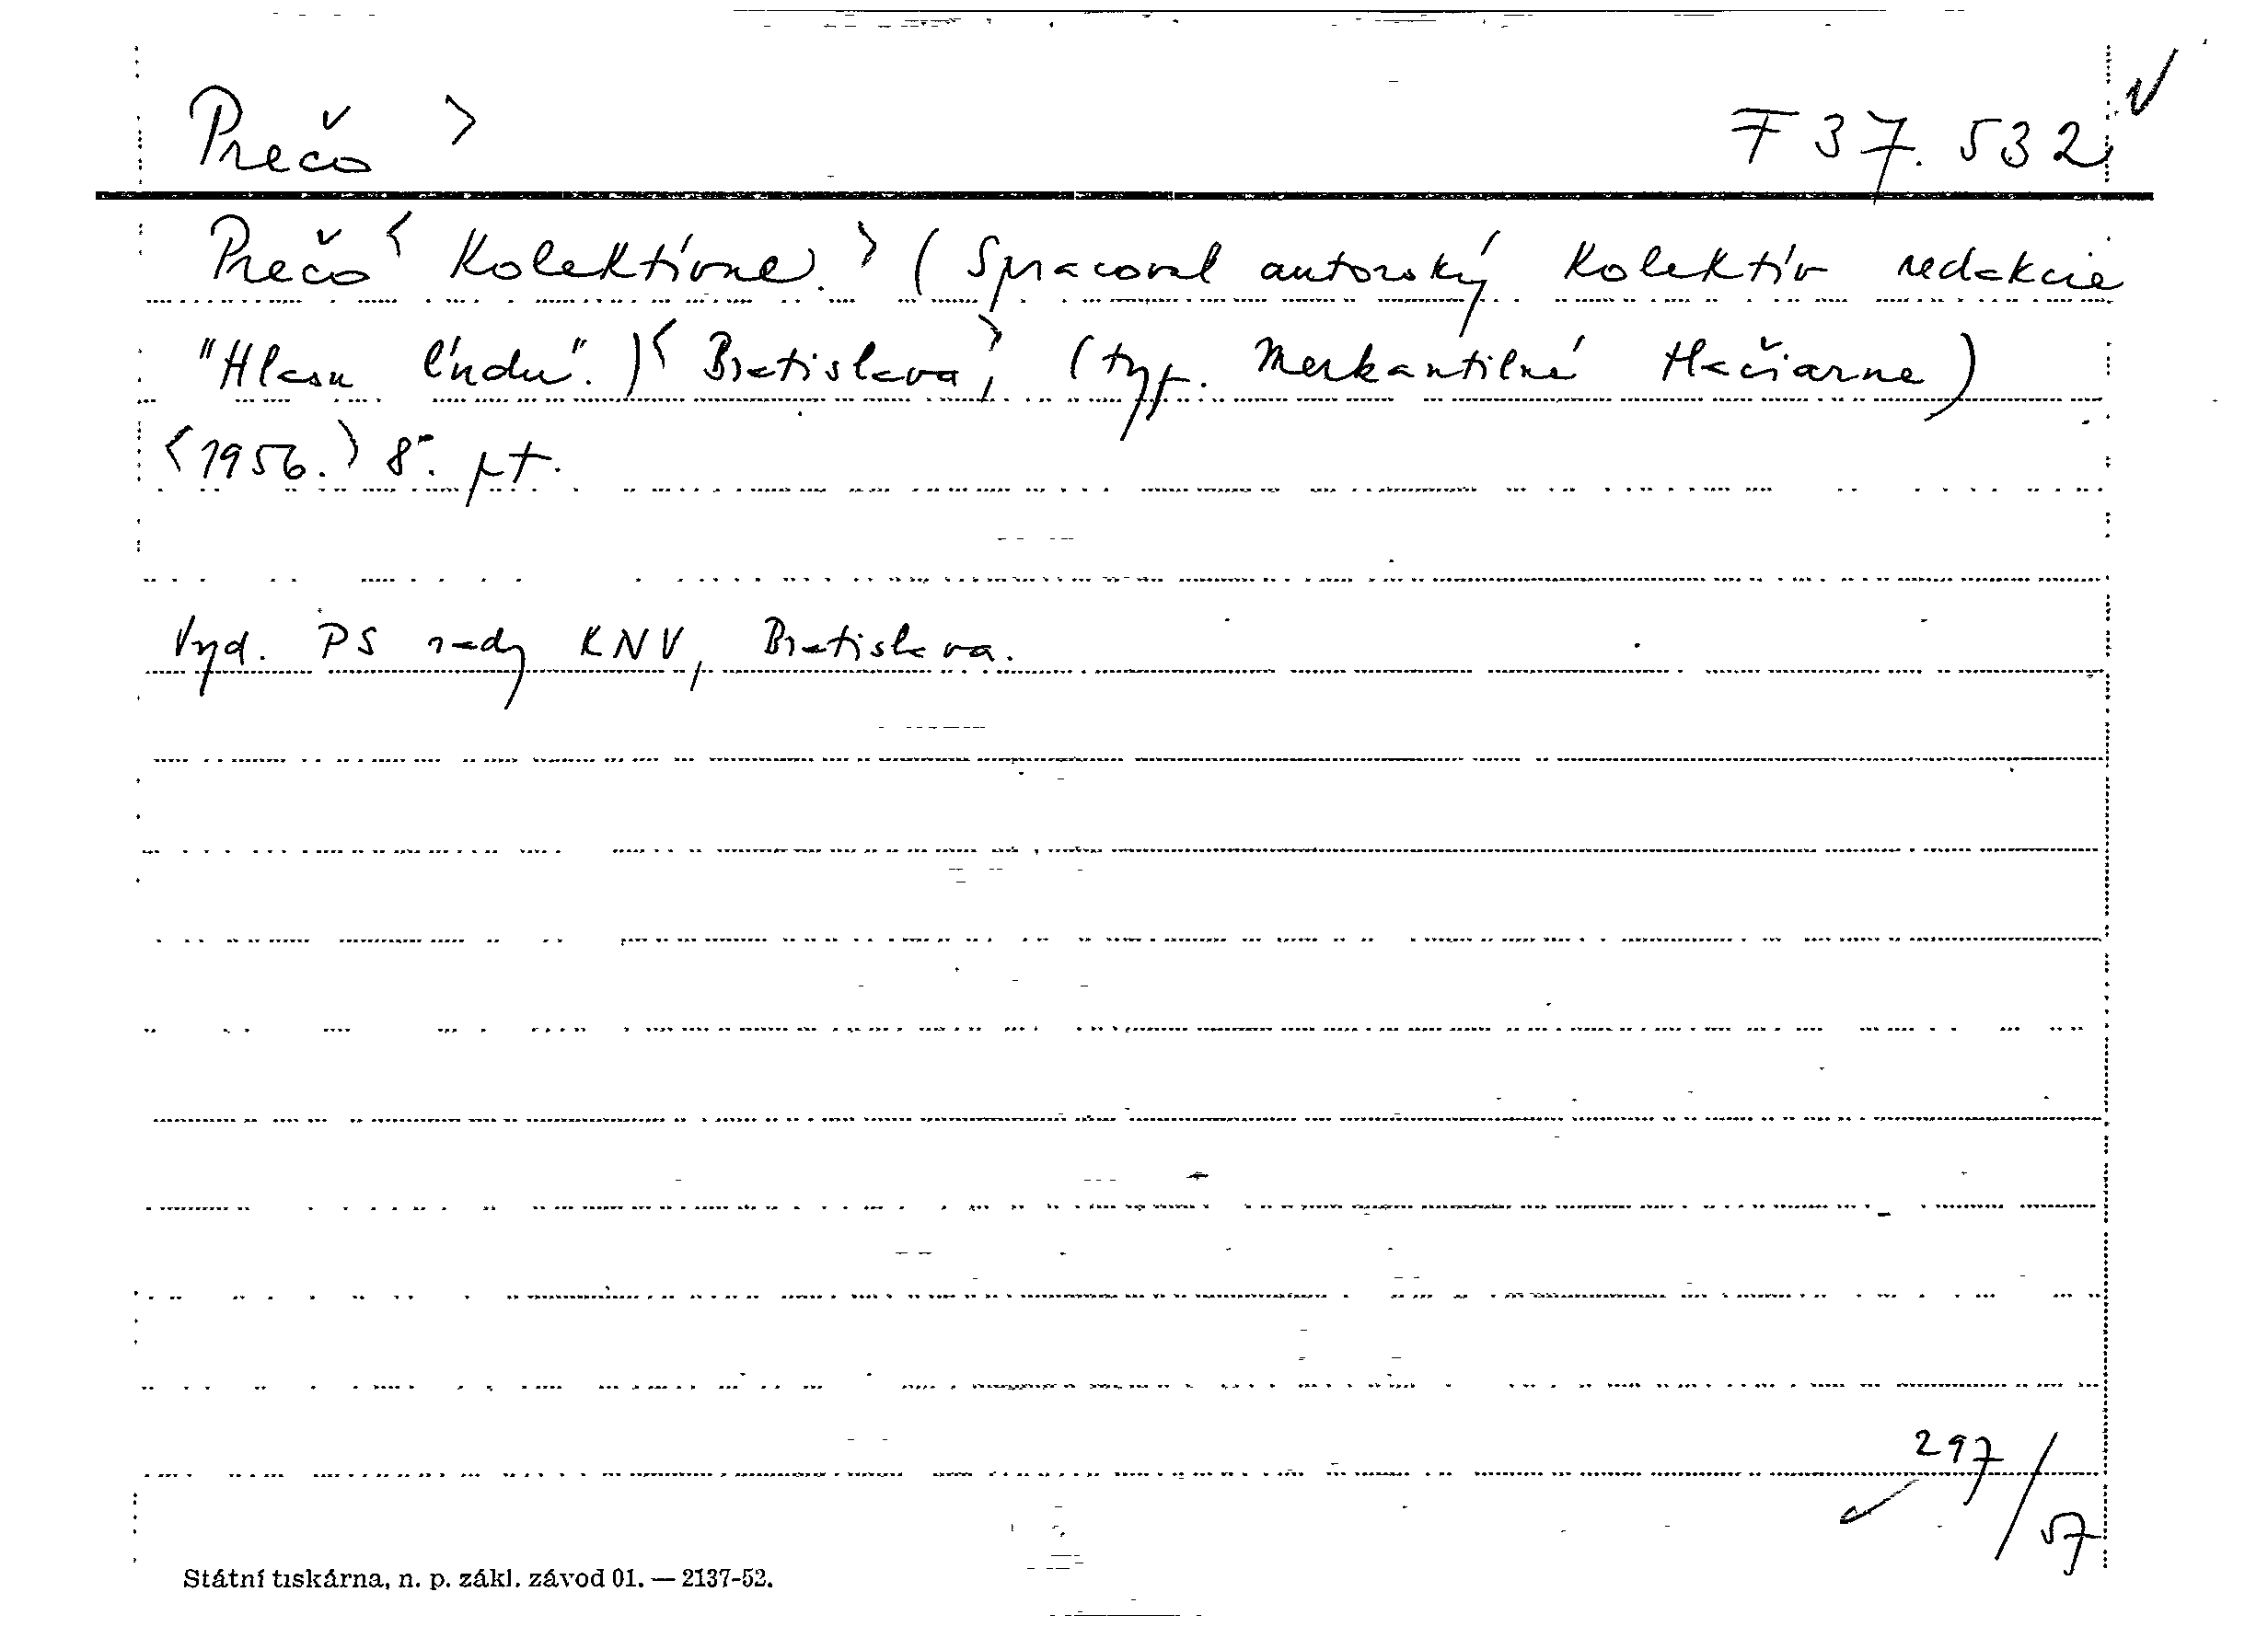 Prečo > F 37.532
Prečo < Kolektívne. > ( Spracoval autorský kolektív redakcie
"Hlasu ľudu". ) < Bratislava, > (typ. Merkantilné tlačiarne)
<1956.> 8°. pt.
Vyd. PS rady KNV, Bratislava.
297/57
Státní tiskárna, n. p. zákl. závod 01. — 2137-52.